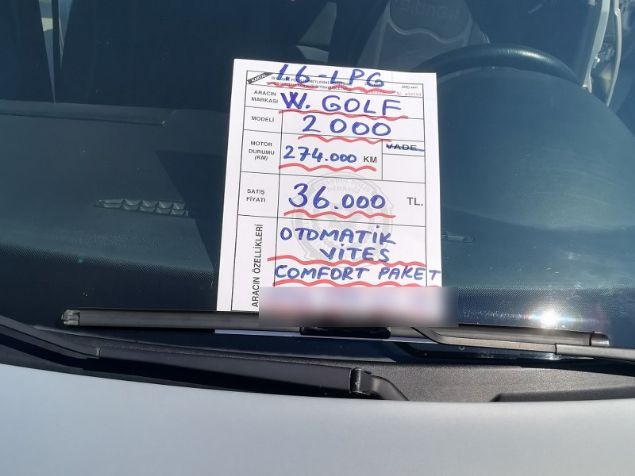 1.6-LPG
ARACIN MARKASI W. GOLF
MODELİ 2000
MOTOR DURUMU (KM) 274.000 KM VADE
SATIŞ FİYATI 36.000 TL.
ARACIN ÖZELLİKLERİ
OTOMATİK
VİTES
COMFORT PAKET